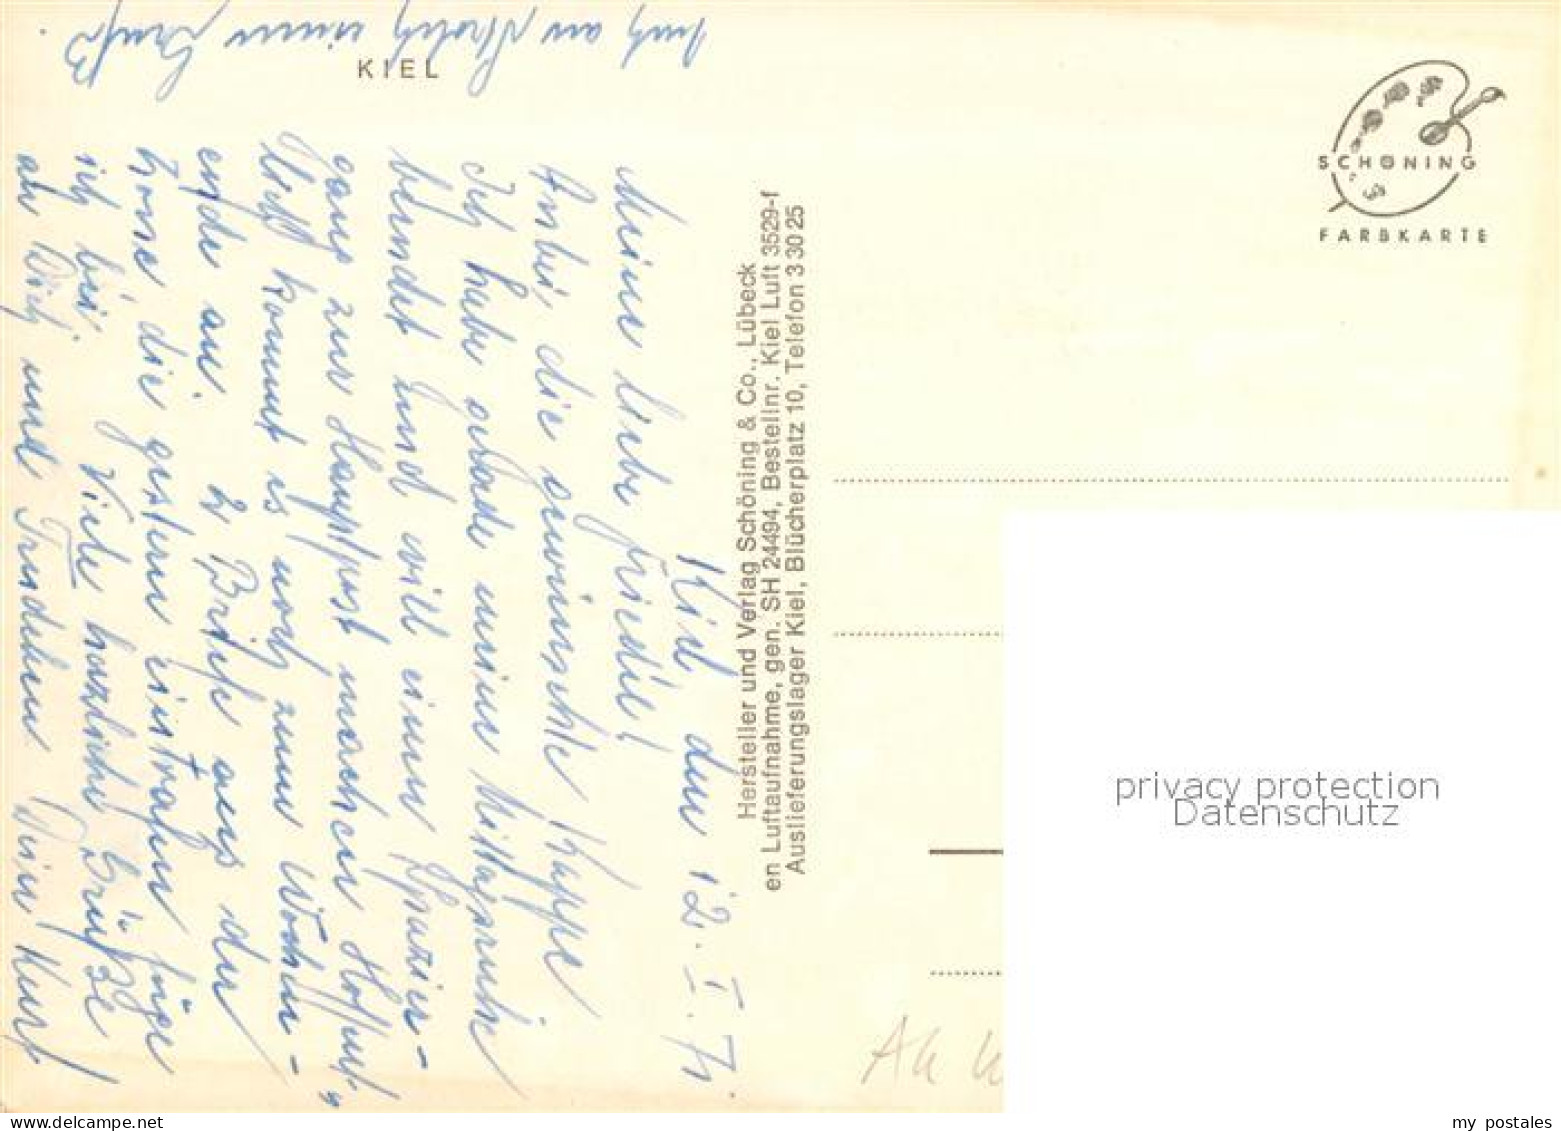 KIEL
SCHÖNING
FARBKARTE
Kiel den 12. I. 71.
Meine liebe Friedel!
Anbei, die gewünschte Kappe
Ich habe gerade meine Mittagsruhe
beendet und will einen Spazier-
gang zur Hauptpost machen. Hoffent-
lich kommt es noch zum Wochen-
ende an. 2 Briefe aus der
Zone, die gestern eintrafen füge
ich bei. Viele herzliche Grüße
an Dich und Trudchen Dein Kurt
auch an einen Gruß.
Hersteller und Verlag Schöning & Co., Lübeck
en Luftaufnahme, gen. SH 24494, Bestellnr. Kiel Luft 3529-f
Auslieferungslager Kiel, Blücherplatz 10, Telefon 3 30 25
privacy protection
Datenschutz
my postales